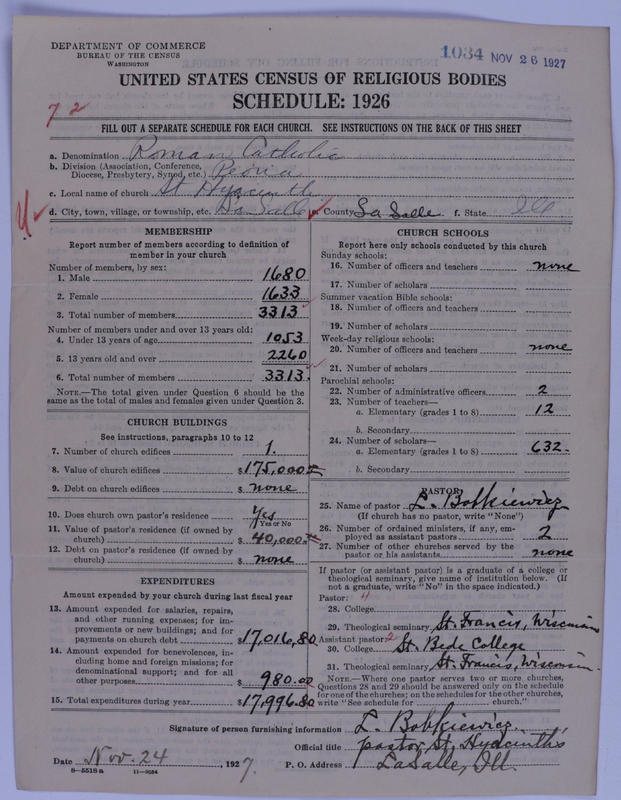 DEPARTMENT OF COMMERCE
BUREAU OF THE CENSUS
WASHINGTON
1034 NOV 26 1927
UNITED STATES CENSUS OF RELIGIOUS BODIES
SCHEDULE: 1926
72
FILL OUT A SEPARATE SCHEDULE FOR EACH CHURCH. SEE INSTRUCTIONS ON THE BACK OF THIS SHEET
a. Denomination Roman Catholic
b. Division (Association, Conference, Diocese, Presbytery, Synod, etc.) Peoria
c. Local name of church St Hyacinth
d. City, town, village, or township, etc. La Salle e. County La Salle f. State Ill
MEMBERSHIP
Report number of members according to definition of
member in your church
Number of members, by sex:
1. Male 1680
2. Female 1633
3. Total number of members 3313
Number of members under and over 13 years old:
4. Under 13 years of age 1053
5. 13 years old and over 2260
6. Total number of members 3313
NOTE.—The total given under Question 6 should be
same as the total of males and females given under Question 3.
CHURCH BUILDINGS
See instructions, paragraphs 10 to 12
7. Number of church edifices 1.
8. Value of church edifices $175,000
9. Debt on church edifices $ none
10. Does church own pastor's residence Yes
Yes or No
11. Value of pastor's residence (if owned by
church) $ 40,000
12. Debt on pastor's residence (if owned by
church) $ none
EXPENDITURES
Amount expended by your church during last fiscal year
13. Amount expended for salaries, repairs,
and other running expenses; for im-
provements or new buildings; and for
payments on church debt $17,016,80
14. Amount expended for benevolences, in-
cluding home and foreign missions; for
denominational support; and for all
other purposes $ 980.00
15. Total expenditures during year $17,996.80
CHURCH SCHOOLS
Report here only schools conducted by this church
Sunday schools:
16. Number of officers and teachers none
17. Number of scholars
Summer vacation Bible schools:
18. Number of officers and teachers
19. Number of scholars
Week-day religious schools:
20. Number of officers and teachers none
21. Number of scholars
Parochial schools:
22. Number of administrative officers 2
23. Number of teachers—
a. Elementary (grades 1 to 8) 12
b. Secondary
24. Number of scholars—
a. Elementary (grades 1 to 8) 632
b. Secondary
PASTOR
25. Name of pastor L. Bobkiewicz
(If church has no pastor, write "None")
26. Number of ordained ministers, if any, em-
ployed as assistant pastors 2
27. Number of other churches served by the
pastor or his assistants none
If pastor (or assistant pastor) is a graduate of a college or
theological seminary, give name of institution below. (If
not a graduate, write "No" in the space indicated.)
Pastor: 4
28. College
29. Theological seminary St. Francis, Wisconsin
Assistant pastor: 2
30. College St. Bede College
31. Theological seminary St. Francis, Wisconsin
NOTE.—Where one pastor serves two or more churches,
Questions 28 and 29 should be answered only on the schedule
for one of the churches; on the schedules for the other churches,
write "See schedule for church."
Signature of person furnishing information L. Bobkiewicz
Official title pastor St. Hyacinth's
Date Nov. 24, 1927.
P. O. Address LaSalle, Ill.
8—5518 a 11—9034